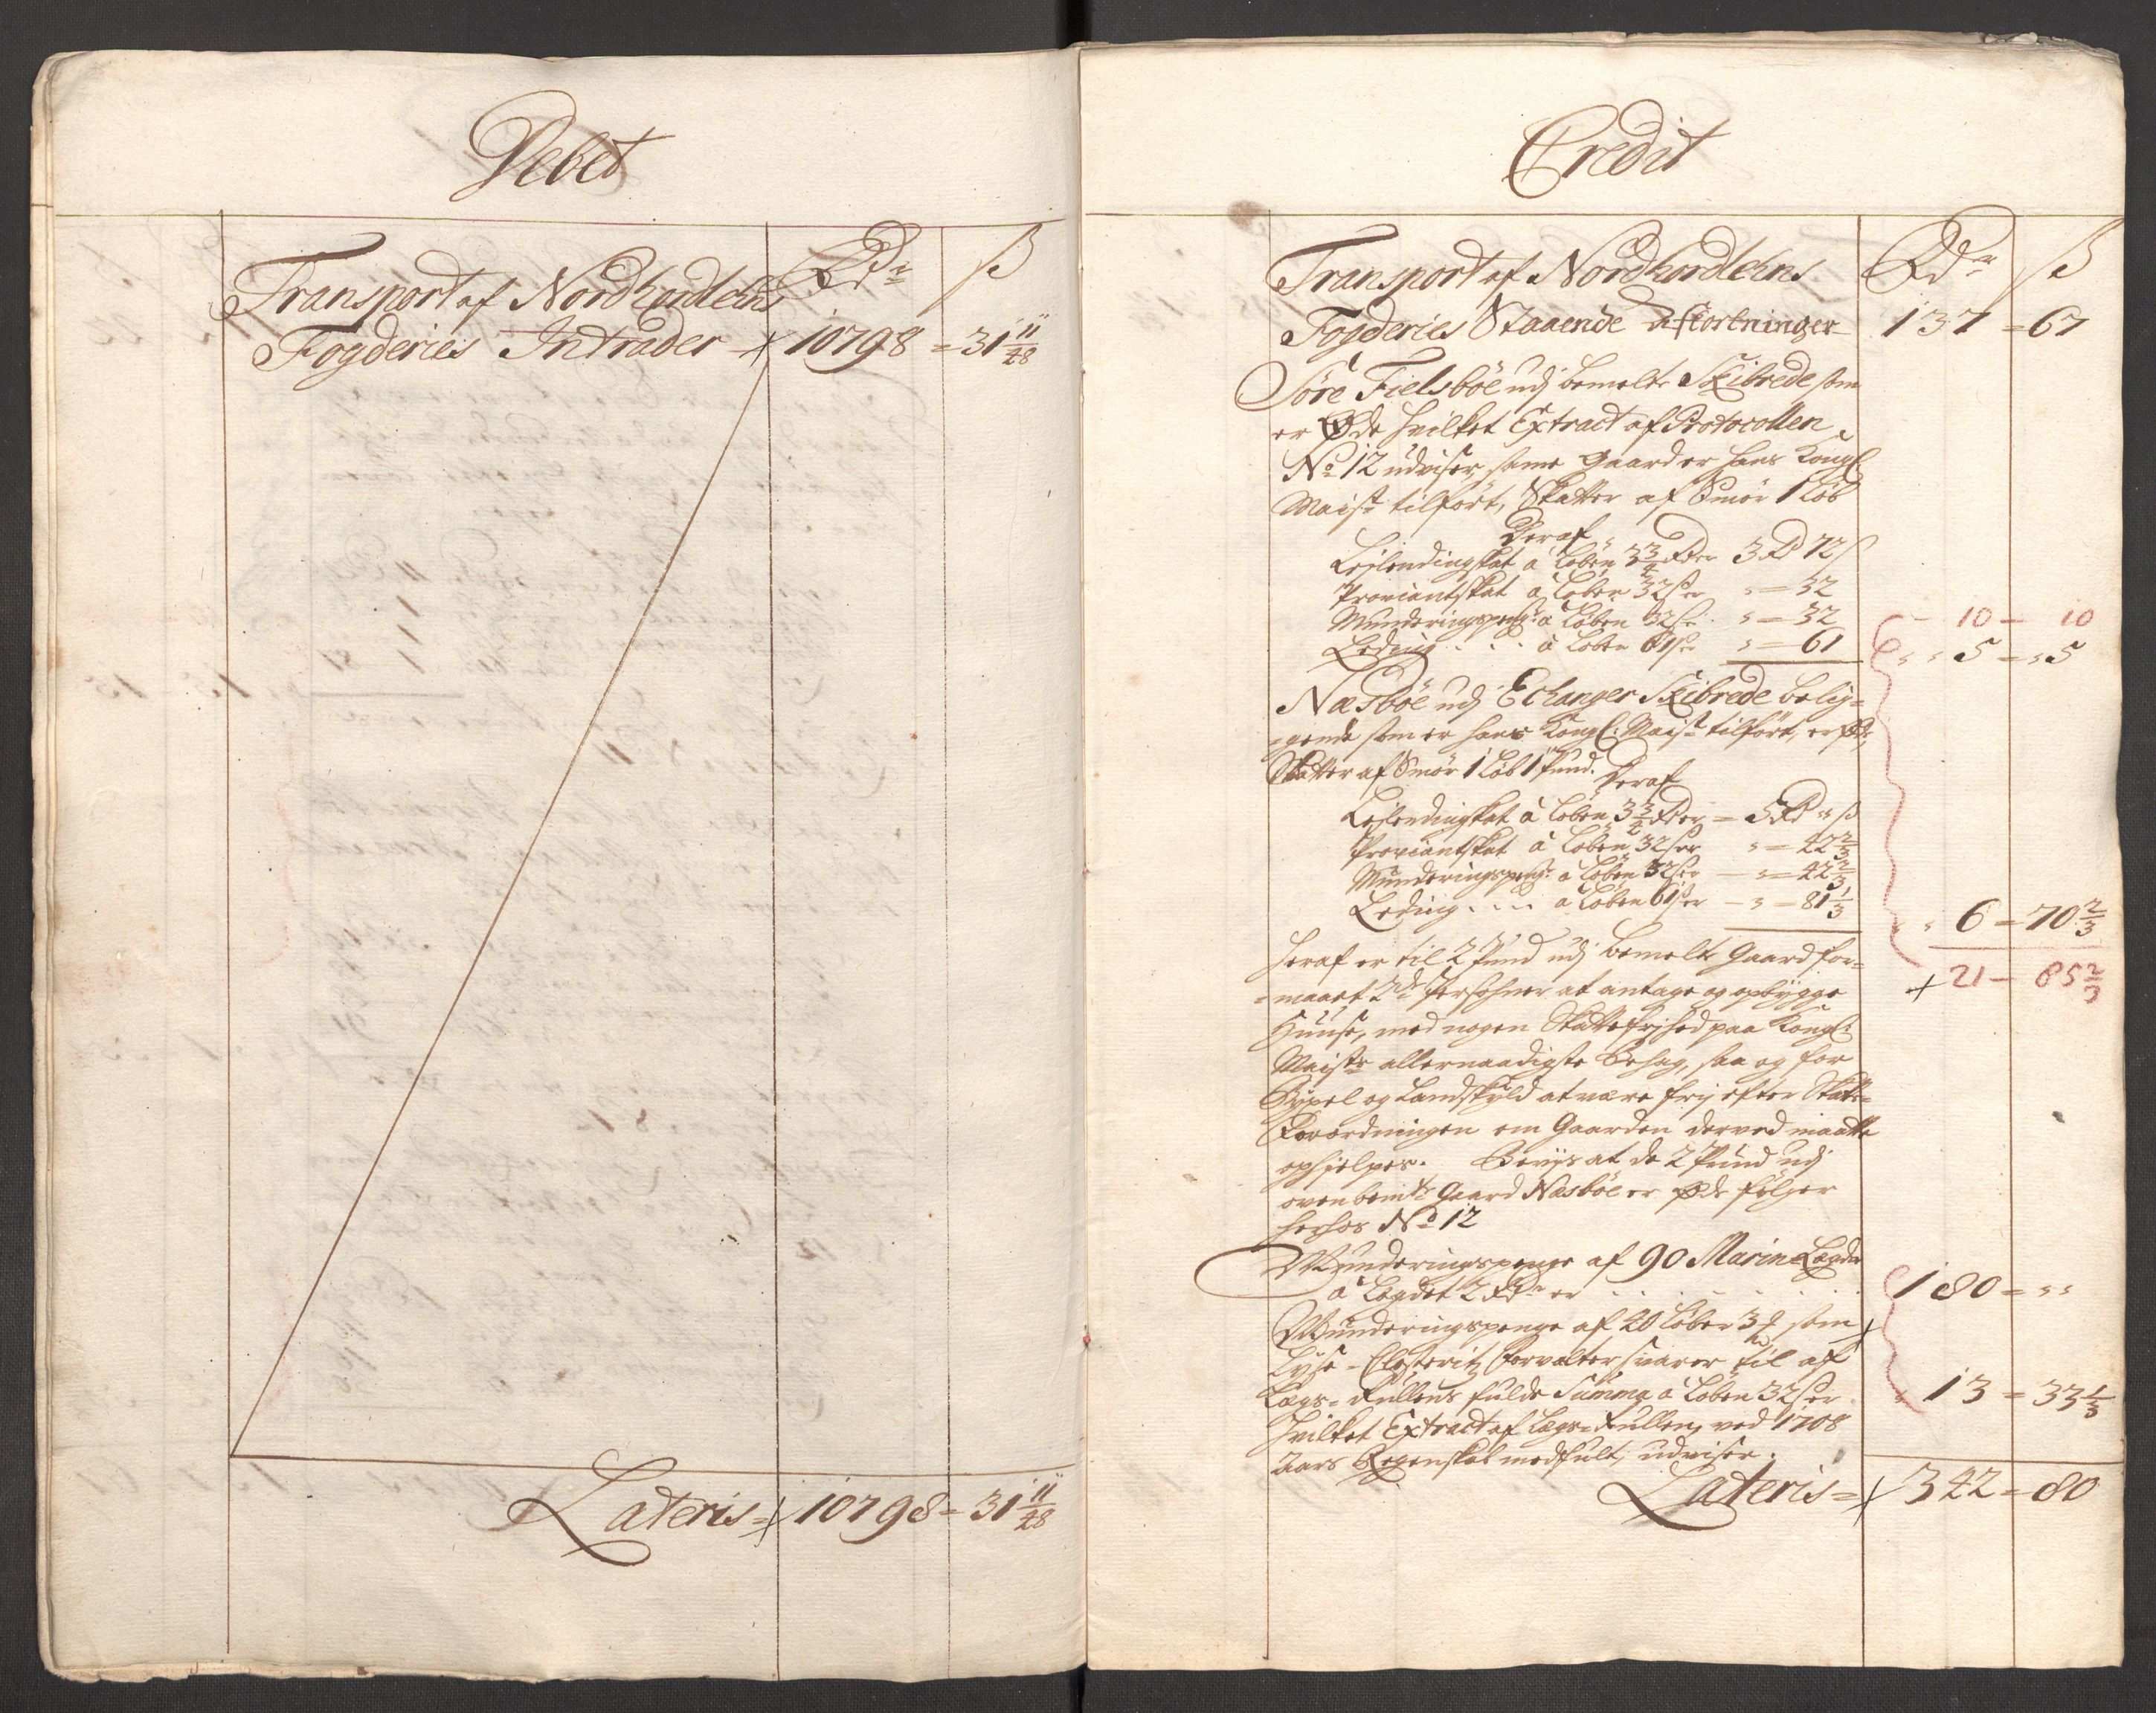 Debet
Rdr ß
Transport af Nordhordlehns
Fogderies Intrader 10798 = 31 11/48
Lateris = 10798 = 31 11/48
Credit
Rdr ß
Transport af Nordhordlehns
Fogderies Staaende Afkortninger 137 = 67
Søre Fielsböe udj bemelte Skibrede som
er Øde hvilket Extract af Protocollen
No 12 udviser, same Gaard er Hans Kongl
Maist tilhört, Skatter af Smör 1 Löb
Deraf
Leylendingskat à Löben 3 3/4 Rdr er 3 Rd 72 ß
Proviantskat à Löben 32 ß er " = 32
Munderingspeng: à Löben 32 ß " = 32
10 - 10
Leding . . . à Löben 61 ß " = 61
5 = " 5
Næsböe udj Echanger Skibrede belig=
=gende som er Hans Kongl: Maist tilhört, er öde,
Skatter af Smör 1 Löb 1 Pund. Deraf
Leylendingskat à Löben 3 3/4 Rdr er = 5 Rd " ß
Proviantskat à Löben 32 ß er " = 42 2/3
Munderingspeng: à Löben 32 ß er " = 42 2/3
Leding . . . à Löben 61 ß er " = 81 1/3
6 = 70 2/3
Heraf er til 2 Pund udj bemelte Gaard for=
21 - 85 2/3
=maaet 2de Persohner at antage og opbygge
Huuse, med nogen Skattefrjhed paa Kongl:
Maists allernaadigste Behag, saa og for
Böxel og Landskyld at være frj efter Skatte=
Forordningen om Gaarden derved maatte
ophielpes. Beviis at de 2 Pund udj
ovenbemte Gaard Næsböe er Øde følger
herhos No 12
Munderingspenge af 90 Marine Legder
à Legdet 2 Rdr er . . . 180 = " "
Munderingspenge af 40 Löber 3 som
Lyse-Closteritz Forvalter svarer til af
Legs-Rullens fulde Summa à Löben 32 ß er 13 = 33 1/3
Hvilket Extract af Legs-Rullen, ved 1708
Aars Regenskab medfult, udviser.
Lateris = 342 = 80